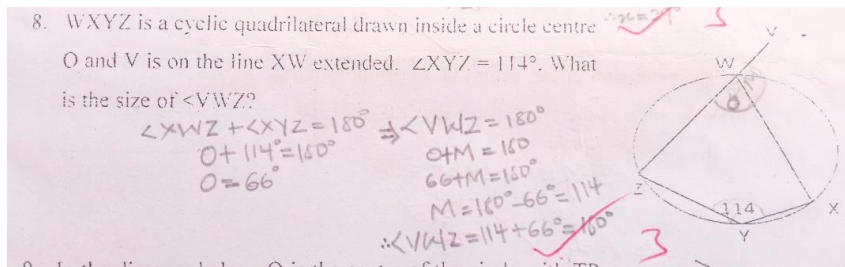 ∴x=27°
3
8. WXYZ is a cyclic quadrilateral drawn inside a circle centre
O and V is on the line XW extended. ∠XYZ = 114°. What
is the size of <VWZ?
∠XWZ + <XYZ = 180° ⇒ <VWZ = 180°
O + 114° = 180°
O = 66°
O+M = 180
66+M = 180°
M = 180° - 66° = 114
∴ <VWZ = 114 + 66° = 180°
3
V
W
M
O
Z
114
X
Y